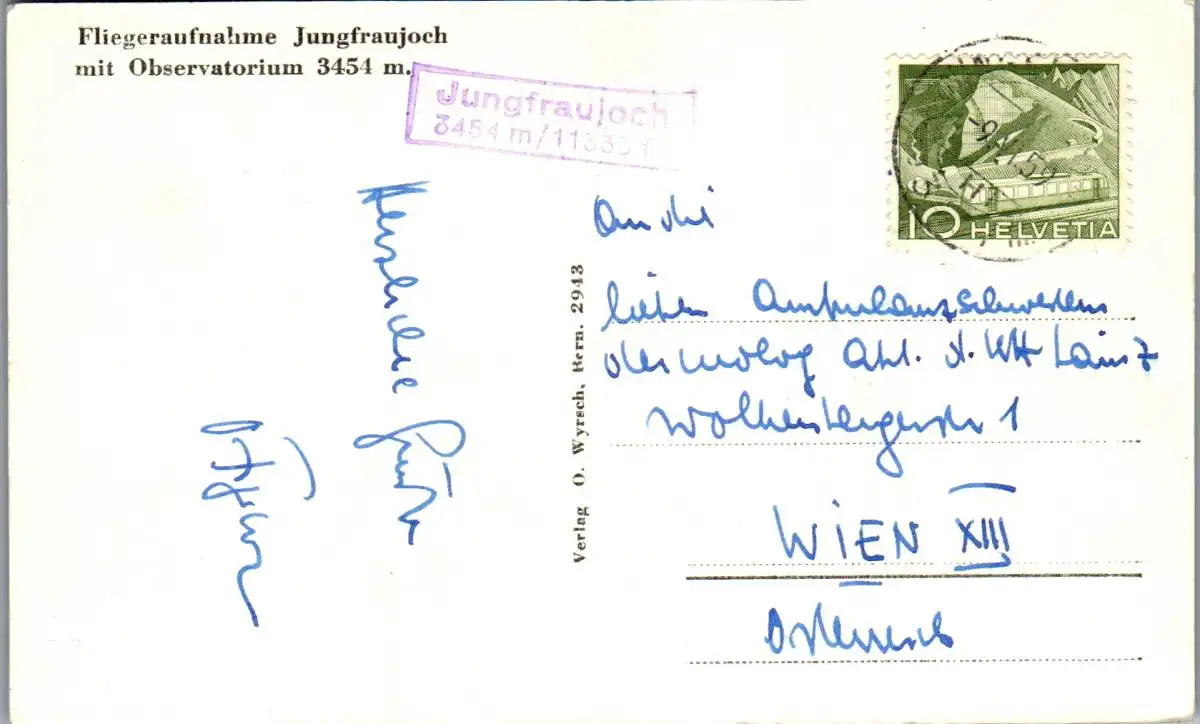 Fliegeraufnahme Jungfraujoch
mit Observatorium 3454 m.
Jungfraujoch
3454 m/11333 f
10 HELVETIA
Herzliche
Grüße
Verlag O. Wyrsch, Bern. 2943
An die
lieben Ambulanzschwestern
dermolog Abt. d. KH Lainz
Wolkersbergenstr 1
WIEN XIII
Österreich